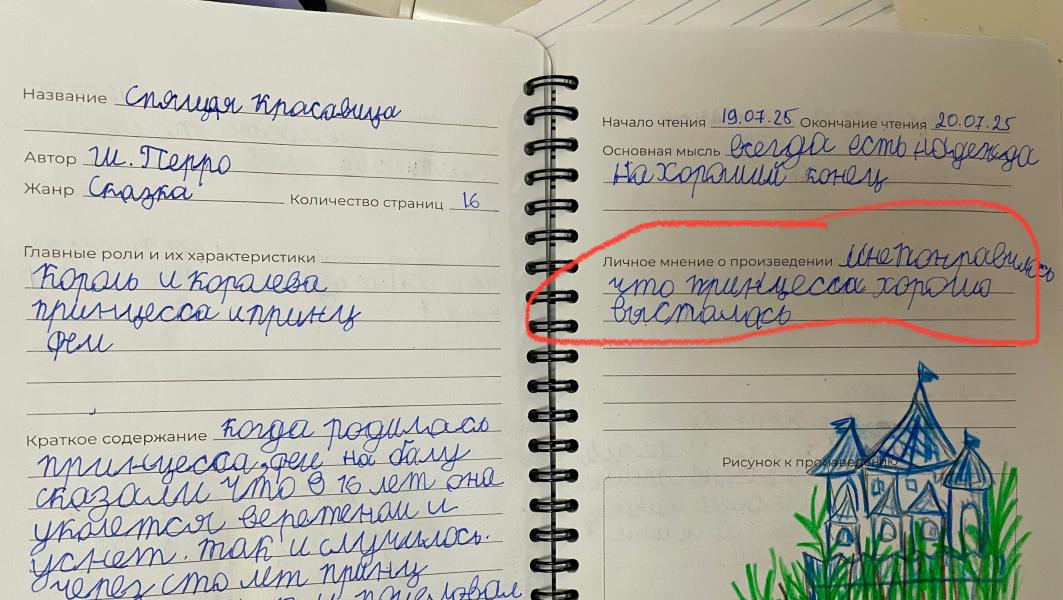 Название Спящая Красавица
Автор Ш. Перро
Жанр Сказка Количество страниц 16
Главные роли и их характеристики
Король и королева
принцесса и принц
феи
Краткое содержание когда родилась
принцесса, феи на балу
сказали что в 16 лет она
уколется веретеном и
уснет. так и случилось.
через сто лет принц
Начало чтения 19.07.25 Окончание чтения 20.07.25
Основная мысль всегда есть надежда
на хороший конец
Личное мнение о произведении мне понравилось
что принцесса хорошо
высталась
Рисунок к произведению